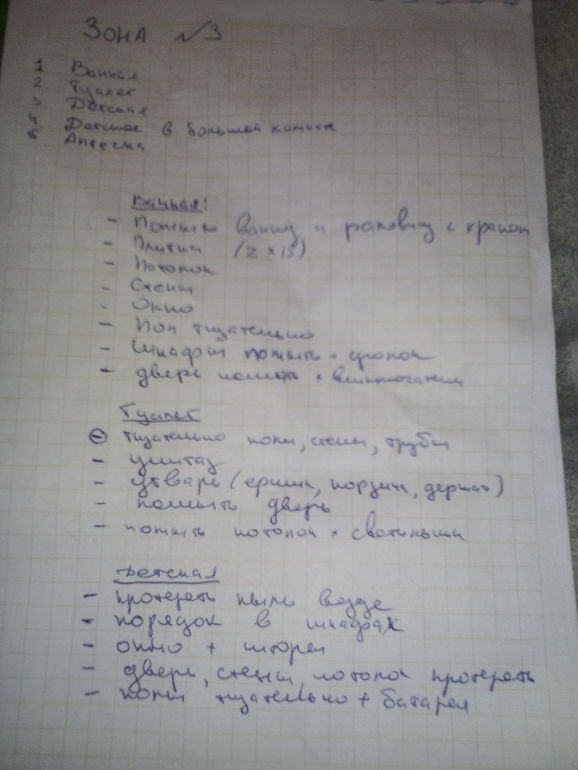 Зона №3
1 Ванная
2 Туалет
3 Детская
4 Детское в большой комнате
5 Аптечка
Ванная:
- Помыть ванну и раковину с краном
- Плитка (2 × 15)
- Потолок
- Стены
- Окно
- Пол тщательно
- Шкафы помыть +
- дверь помыть +
Туалет
- тщательно полы, стены, трубы
- унитаз
- утварь (ершик, корзина, держат)
- помыть дверь
- помыть потолок + светильник
Детская
- протереть пыль везде
- порядок в шкафах
- окно + шторы
- дверь, стены, потолок протереть
- полы тщательно + батарея